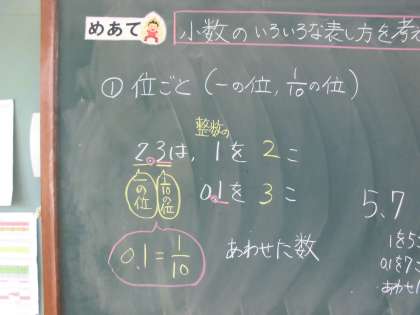 めあて
小数のいろいろな表し方を考え
① 位ごと (一の位, 1/10の位)
整数の
2.3は, 1を 2こ
0.1を 3こ
一の位
1/10の位
0.1=1/10
あわせた数
5.7
1を5こ
0.1を7こ
あわせた